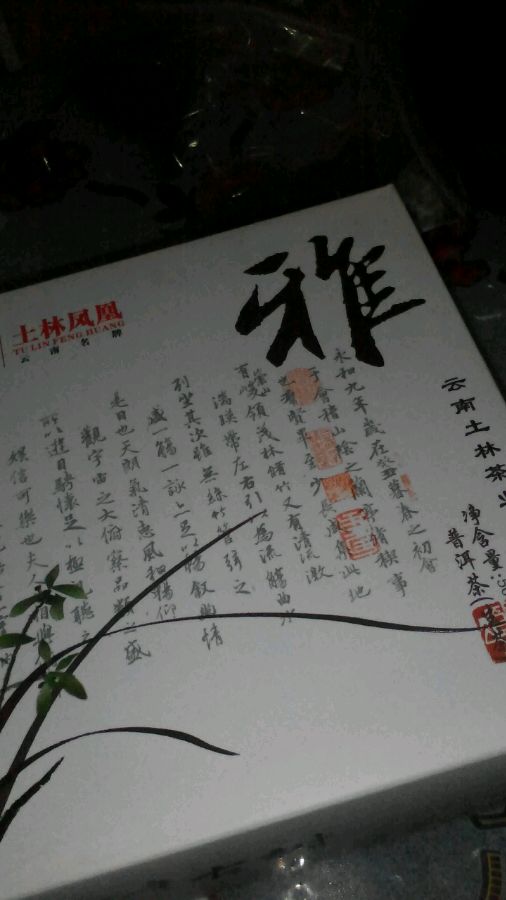 土林凤凰
TU LIN FENG HUANG
云南名牌
雅
云南土林茶业
净含量
普洱茶
永和九年歲在癸丑暮春之初會
于會稽山陰之蘭亭脩稧事
也羣賢畢至少長咸集此地
有崇山峻領茂林脩竹又有清流激
湍暎帶左右引以為流觴曲水
列坐其次雖無絲竹管弦之
盛一觴一詠亦足以暢敘幽情
是日也天朗氣清惠風和暢仰
觀宇宙之大俯察品類之盛
所以遊目騁懷足以極視聽之
娛信可樂也夫人之相與